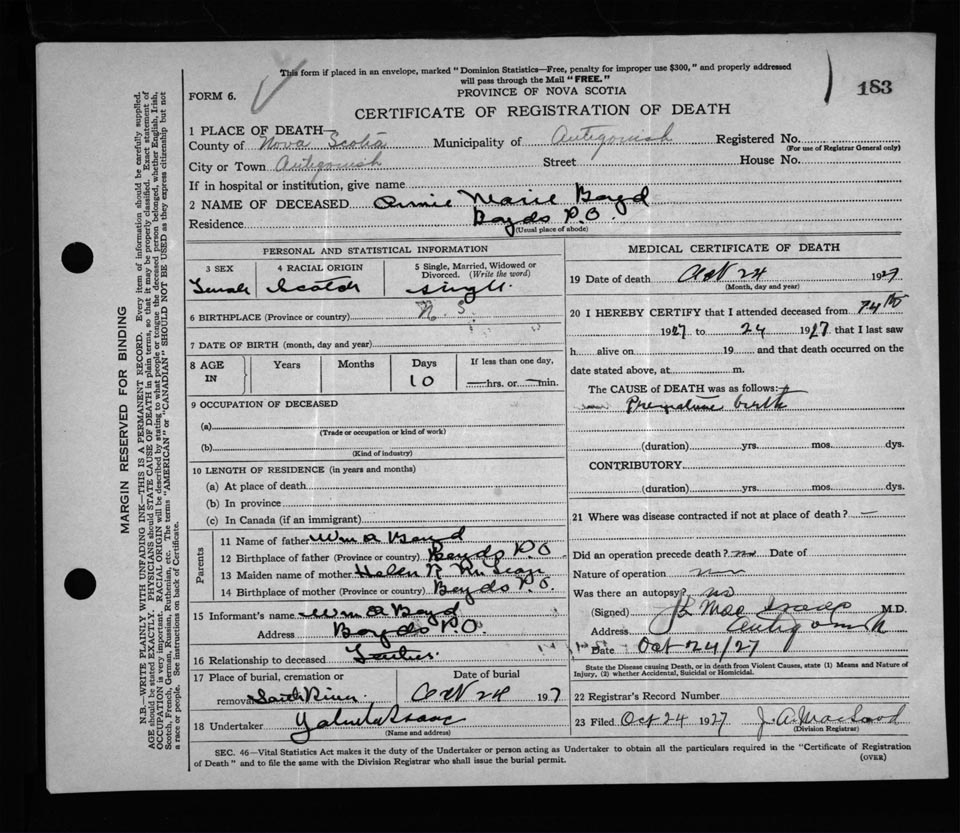 This form if placed in an envelope, marked "Dominion Statistics—Free, penalty for improper use $300," and properly addressed
will pass through the Mail "FREE."
183
FORM 6.
PROVINCE OF NOVA SCOTIA
CERTIFICATE OF REGISTRATION OF DEATH
1 PLACE OF DEATH—
County of Nova Scotia Municipality of Antigonish Registered No.
(For use of Registrar General only)
City or Town Antigonish Street House No.
If in hospital or institution, give name
2 NAME OF DECEASED Annie Marie Boyd
Residence Boyds P.O.
(Usual place of abode)
PERSONAL AND STATISTICAL INFORMATION
3 SEX 4 RACIAL ORIGIN 5 Single, Married, Widowed or Divorced. (Write the word)
Female Scotch Single
6 BIRTHPLACE (Province or country) N.S.
7 DATE OF BIRTH (month, day and year)
8 AGE IN Years Months Days If less than one day,
10 hrs. or min.
9 OCCUPATION OF DECEASED
(a)
(Trade or occupation or kind of work)
(b)
(Kind of industry)
10 LENGTH OF RESIDENCE (in years and months)
(a) At place of death
(b) In province
(c) In Canada (if an immigrant)
Parents
11 Name of father Wm A Boyd
12 Birthplace of father (Province or country) Boyds P.O
13 Maiden name of mother Helen
14 Birthplace of mother (Province or country) Boyds P.O.
15 Informant's name Wm A Boyd
Address Boyds P.O.
16 Relationship to deceased Father
17 Place of burial, cremation or removal South River Date of burial Oct 24 1927
18 Undertaker
(Name and address)
MEDICAL CERTIFICATE OF DEATH
19 Date of death Oct 24 1927
(Month, day and year)
20 I HEREBY CERTIFY that I attended deceased from
1927 to 24 1927 that I last saw
h alive on 19 and that death occurred on the
date stated above, at m.
The CAUSE of DEATH was as follows:
Premature birth
(duration) yrs. mos. dys.
CONTRIBUTORY
(duration) yrs. mos. dys.
21 Where was disease contracted if not at place of death? —
Did an operation precede death? no Date of
Nature of operation
Was there an autopsy? no
(Signed) M.D.
Address Antigonish
Date Oct 24/27
State the Disease causing Death, or in death from Violent Causes, state (1) Means and Nature of
Injury, (2) whether Accidental, Suicidal or Homicidal.
22 Registrar's Record Number
23 Filed Oct 24 1927 J. A. MacLeod
(Division Registrar)
SEC. 46—Vital Statistics Act makes it the duty of the Undertaker or person acting as Undertaker to obtain all the particulars required in the "Certificate of Registration
of Death" and to file the same with the Division Registrar who shall issue the burial permit.
(OVER)
MARGIN RESERVED FOR BINDING
N.B.—WRITE PLAINLY WITH UNFADING INK—THIS IS A PERMANENT RECORD. Every item of information should be carefully supplied.
AGE should be stated EXACTLY. PHYSICIANS should STATE CAUSE OF DEATH in plain terms, so that it may be properly classified. Exact statement of
OCCUPATION is very important. RACIAL ORIGIN will be described by stating to what people or tongue the deceased person belonged, whether English, Irish,
Scotch, French, German, Russian, Ruthenian, etc. The terms "AMERICAN" or "CANADIAN" SHOULD NOT BE USED as they express citizenship but not
a race or people. See instructions on back of Certificate.